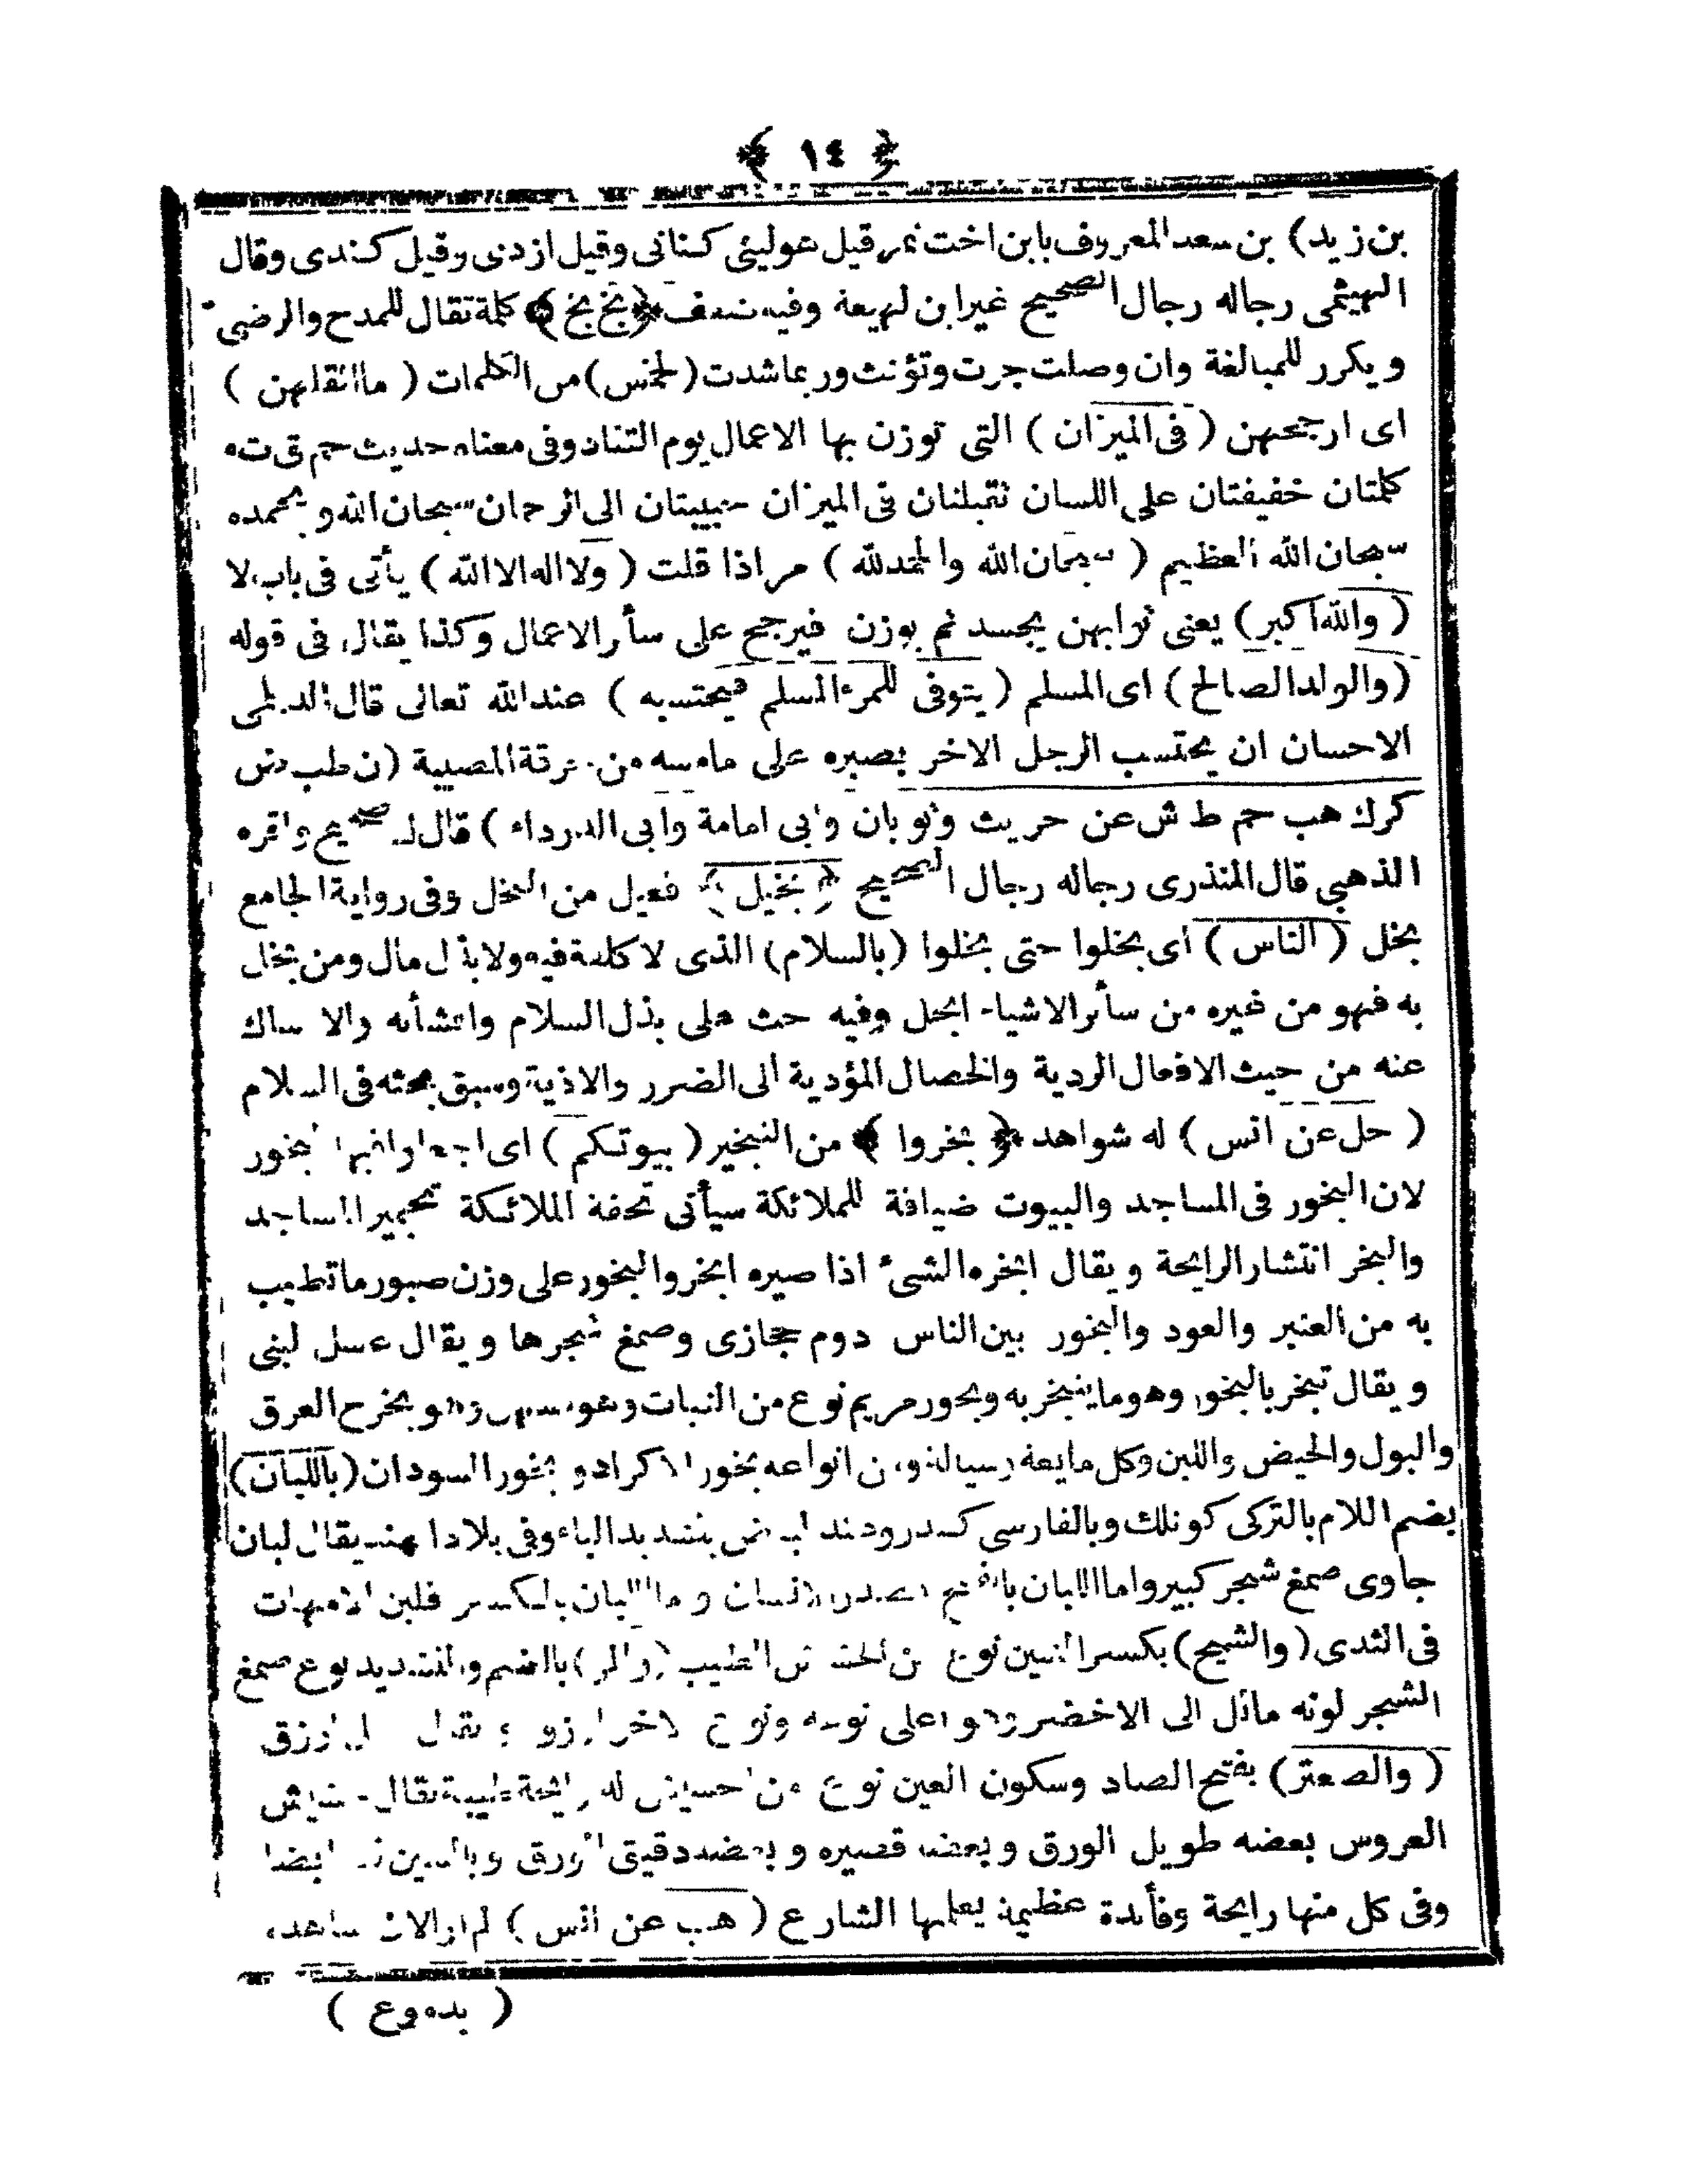 ﴿ ١٤ ﴾
بن زيد) بن سعد المعروف بابن اخت نمر قيل هو ليثى كنانى وقيل ازدى وقيل كندى وقال
الهيثمى رجاله رجال الصحيح غير ابن لهيعة وفيه ضعف ﴿ بخ بخ ﴾ كلمة تقال للمدح والرضى
ويكرر للمبالغة وان وصلت جرت وتؤنث وربما شدت (لخمس) من الكلمات ( ما اثقلهن )
اى ارجحهن ( فى الميزان ) التى توزن بها الاعمال يوم التناد وفى معناه حديث حم ق ت ه
كلمتان خفيفتان على اللسان ثقيلتان فى الميزان حبيبتان الى الرحمان سبحان الله وبحمده
سبحان الله العظيم ( سبحان الله والحمدلله ) مر اذا قلت ( ولا اله الا الله ) يأتى فى باب لا
( والله اكبر) يعنى ثوابهن يجسد ثم يوزن فيرجح على سأر الاعمال وكذا يقال فى قوله
(والولد الصالح ) اى المسلم ( يتوفى للمرء المسلم فيحتسبه ) عند الله تعالى قال الديلمى
الاحسان ان يحتسب الرجل الاخر بصبره على مامسه من حرقة المصيبة (ن طب حس
كرك هب حم ط ش عن حريث وثوبان وابى امامة وابى الدرداء ) قال ك صحيح واقره
الذهبى قال المنذرى رجاله رجال الصحيح ﴿ بخيل ﴾ فعيل من البخل وفى رواية الجامع
بخل ( الناس ) اى بخلوا حتى بخلوا (بالسلام) الذى لا كلفة فيه ولا بذل مال ومن بخل
به فهو من غيره من سأر الاشياء ابخل وفيه حث على بذل السلام وافشأه والامساك
عنه من حيث الافعال الردية والخصال المؤدية الى الضرر والاذية وسبق بحثه فى السلام
( حل عن انس ) له شواهد ﴿ بخروا ﴾ من التبخير ( بيوتكم ) اى اجعلوا فيها البخور
لان البخور فى المساجد والبيوت ضيافة للملائكة سيأتى تحفة الملائكة تجمير المساجد
والبخر انتشار الرايحة ويقال ابخره الشئ اذا صيره ابخر والبخور على وزن صبور ما تطيب
به من العنبر والعود والبخور بين الناس دوم حجازى وصمغ شجرها ويقال عسل لبنى
ويقال تبخر بالبخور وهو ما يتبخر به وبخور مريم نوع من النبات وهو وهو يخرج العرق
والبول والحيض واللبن وكل مايعة وسيالة ومن انواعه بخور الاكراد و بخور السودان (باللبان)
بضم اللام بالتركى كونلك وبالفارسى كندر وعند البعض بتشديد الباء وفى بلاد الهند يقال لبان
جاوى صمغ شجر كبير واما اللبان بالفتح صدر الانسان واما اللبان بالكسر فلبن الامهات
فى الثدى ( والشيح ) بكسر الشين نوع من الحشيش الطيب (والمر) بالضم والتشديد نوع صمغ
الشجر لونه مائل الى الاخضر وهو اعلى نوعه ونوع الاخر ازرق
( والصعتر ) بفتح الصاد وسكون العين نوع من الحشيش له رايحة طيبة يقال حشيش
العروس بعضه طويل الورق وبعضه قصيره وبعضه دقيق الورق وبالسين ايضا
وفى كل منها رايحة وفأدة عظيمة يعلمها الشارع ( هب عن انس ) لم ار الان شاهده